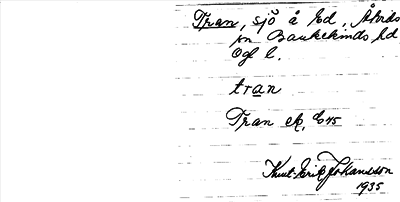 Tran, sjö å Ed, Åtvids
sn. Bankekinds hd
Ögl.
tran
Tran ek, E45
Knut-Erik Johansson
1935